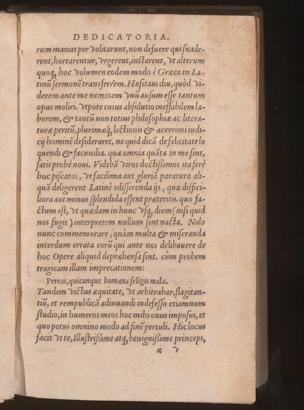 DEDICATORIA.
rum manus per volitarunt, non defuere qui suade-
rent, hortarentur, vrgerent, instarent, vt alterum
quoq; hoc volumen eodem modo è Græco in La-
tinũ sermonẽ transferrem. Hæsitaui diu, quòd vi-
derem ante me neminem vnũ ausum esse tantum
opus moliri. Vtpote cuius absolutio ineffabilem la-
borem, & tantũ non totius philosophiæ ac litera-
turæ peritũ, plurimæq; lectionis & acerrimi iudi-
cij hominẽ desideraret, ne quid dicã de felicitate lo
quendi & facundia. quæ omnia quàm in me sint,
satis probè noui. Videbã viros doctißimos ita ferè
hoc piscatos, vt facilima aut gloriã paratura ali-
quã deligerent Latinè edisserenda ijs, quæ diffici-
liora aut minus splendida essent præteritis. quo fa-
ctum est, vt quædam in hunc vsq; diem (nisi quid
nos fugit) interpretem nullum sint nacta. Nolo
nunc commemorare, quàm multa & miseranda
interdum errata eorũ qui ante nos delibauere de
hoc Opere aliquid depræhensa sint. cùm probem
tragicam illam imprecationem:
Pereat, quicunque humana feligis mala.
Tandem victus æquitate, vt arbitrabar, flagitan-
tiũ, et rempublicã adiuuandi indefesso etiamnum
studio, in humeros meos hoc mihi onus imposui, et
quo potui omnino modo ad finẽ pertuli. Hic locus
facit vt te, Illustrißime atq; benignißime princeps,
α v